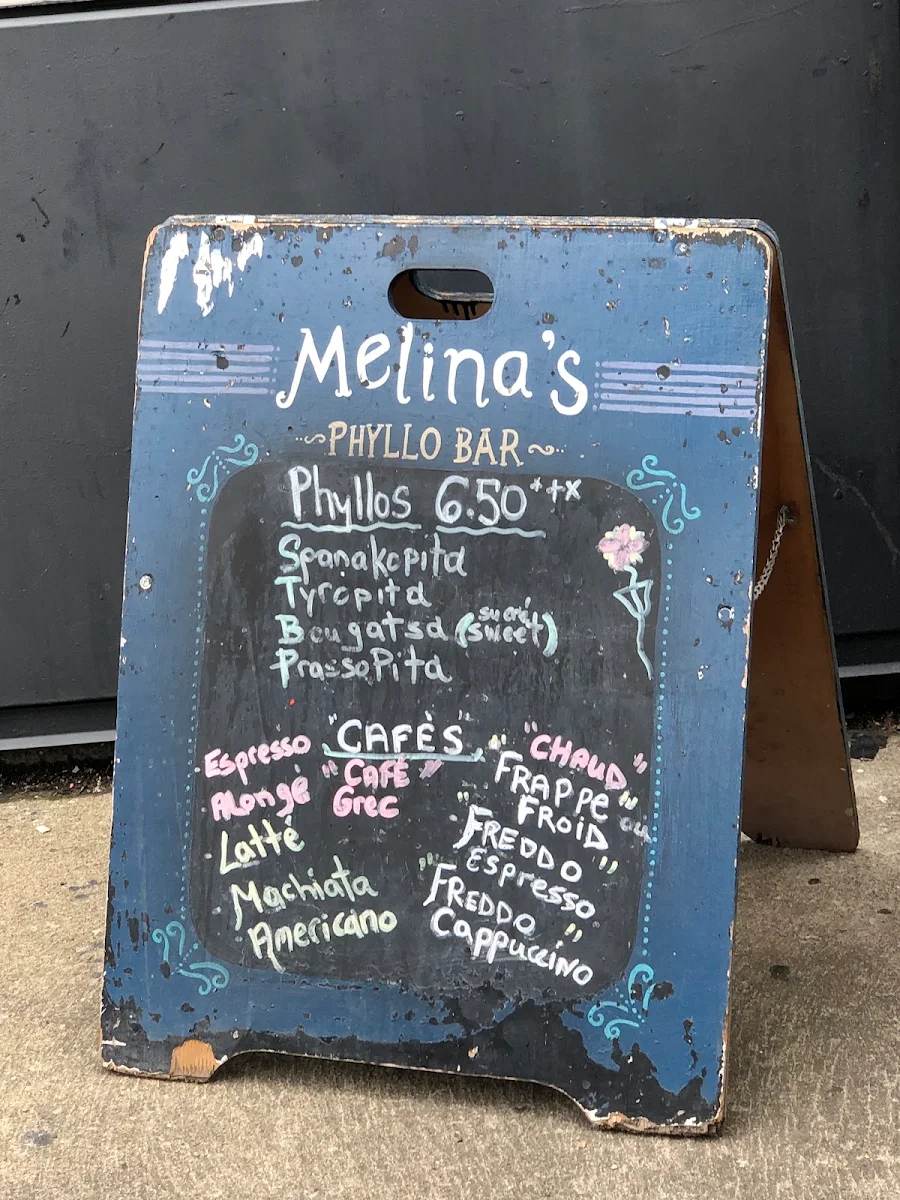 Melina's
PHYLLO BAR
Phyllos 6.50
Spanakopita
Tyropita
Bougatsa (sucré sweet)
PrassoPita
"CAFÈS"
Espresso
Alongé
Latté
Machiata
Americano
"CAFÉ"
Grec
"CHAUD"
"FRAPPE"
FROID ou
"FREDDO"
Espresso
"FREDDO"
Cappuccino